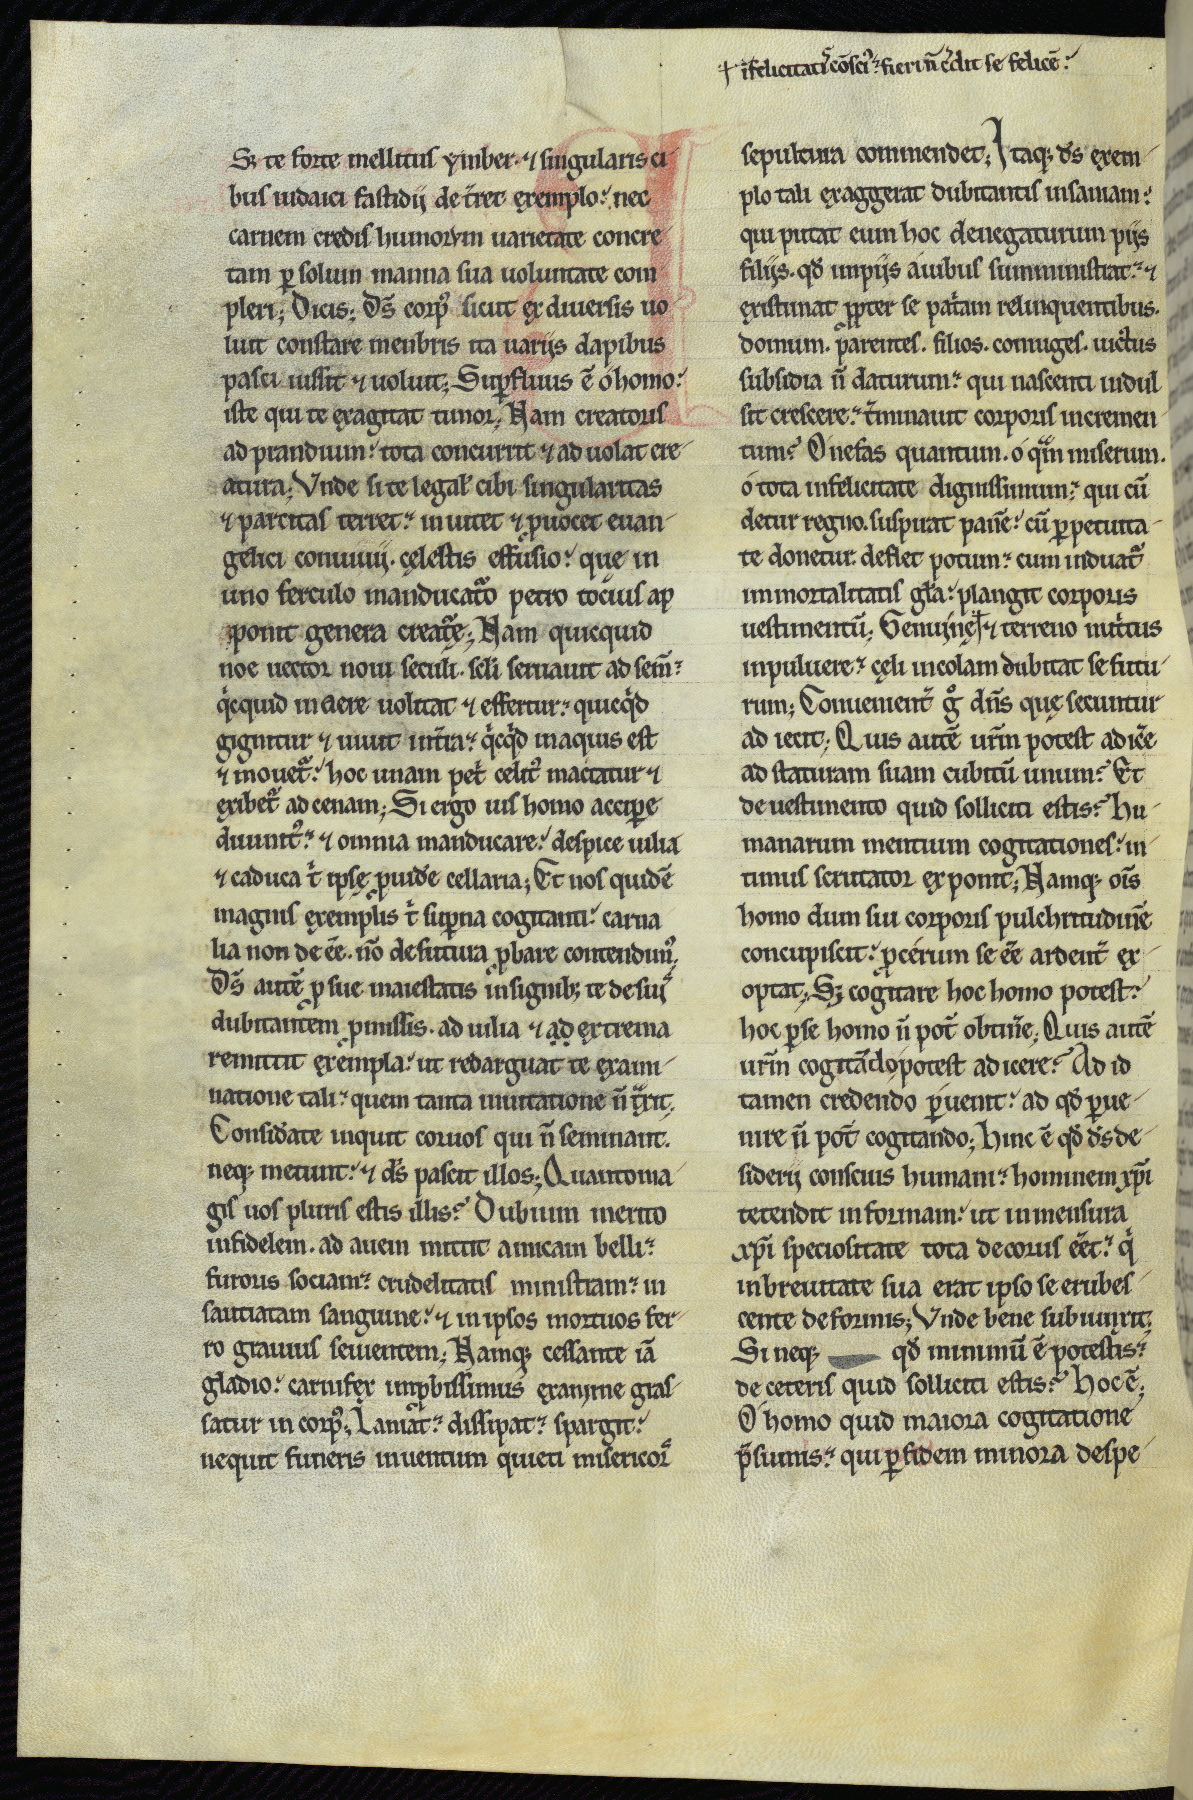 ☩ ifelicitatiſ cōſciꝰ fieri ñ c̃dit ſe felicē.
Sꝫ te forte mellitus ymber. ⁊ ſingularis ci
bus iudaici faſtidij det̃ret exemplo. nec
carnem crediſ humorum uarietate concre
tam ꝑ ſolum manna ſua uoluntate com
pleri; Dicis; Dš corpꝰ ſicut ex diuerſis uo
luit conſtare menbris ita uarijs dapibus
paſci iuſſit ⁊ uoluit; Suꝑfluus ē o homo.
iſte qui te exagitat timor; Nam creatoris
ad prandium. tota concurrit ⁊ aduolat cre
atura; Vnde ſi te legal̛ cibi ſingularitas
⁊ parcitaſ terret. inuitet ⁊ ꝓuocet euan
gelici conuiuij. cęleſtis effuſio. quę in
uno ferculo manducat̃o petro tocius ap
ponit genera creat̃ę; Nam quicquid
noe uector noui ſeculi. ſcl̃i ſeruauit ad ſem̃.
q̇cquid in aere uolitat ⁊ effertur. quicq̇d
gignitur ⁊ uiuit int̃ra. q̇cq̇d in aquis eſt
⁊ mouet̃. hoc unam pet̃ celit̃ mactatur ⁊
exibet̃ ad cenam; Si ergo uis homo acciꝑe
diuinit̃. ⁊ omnia manducare. deſpice uilia
⁊ caduca t̃ ipſę ꝓuid̃e cellaria; Et nos quidē
magnis exemplis t̃ ſuꝑna cogitanti. carna
lia non de eē. nō defutura ꝓbare contendimꝰ;
Dš autē ꝓ ſue maieſtatis inſignibꝫ te de ſuiſ
dubitantem ꝓmiſſis. ad uilia ⁊ ad extrema
remittit exempla. ut redarguat te exami
natione tali. quem tanta inuitatione ñ t̃xit.
Conſid̃ate inquit coruos qui ñ ſeminant.
neqꝫ metunt. ⁊ dš paſcit illos; Quanto ma
gis uos pluris eſtis illis. Dubium merito
infidelem. ad auem mittit amicam belli.
furoris ſociam. crudelitatiſ miniſtram. in
ſautiatam ſanguine. ⁊ in ipſos mortuos fer
ro grauius ſeuientem; Namqꝫ ceſſante iā
gladio. carnifex inꝓbiſſimus exanime graſ
ſatur in corpꝰ; Laniat̃. diſſipat. ſpargit.
nequit funeris inuentum quieti miſericor̃
ſepultura commendet; Itaqꝫ dš exem
plo tali exaggerat dubitantis inſaniam.
qui putat eum hoc denegaturum pijs
filijs. qď impijs auibus ſumminiſtrat. ⁊
exiſtimat ꝓpter ſe pat̃am relinquentibus.
domum. parentes. filios. coniuges. uict̃us
ſubſidia ñ daturum. qui naſcenti indul
ſit creſcere. t̃minauit corporis incremen
tum. O nefas quantum. o qm̃ miſerum.
o tota infelicitate digniſſimum. qui cū
detur regno. ſuſpirat panē. cū ꝑpetuita
te donetur. deflet potum. cum induat̃
immortalitatis gl̃a. plangit corporis
ueſtimentū; Genuinę ☩ ⁊ terreno mit̃tus
in puluere. cęli incolam dubitat ſe futu
rum; Conuenient̃ g̊ dñs quę ſecuntur
adiecit; Quis autē ur̃m potest adic̃e
ad ſtaturam ſuam cubitū unum. Et
de ueſtimento quid ſolliciti eſtis. Hu
manarum mentium cogitationes. in
timus ſcrutator exponit; Namqꝫ oīs
homo dum ſui corporis pulchritudinē
concupiſcit. ꝓcerum ſe eē ardent̃ ex
optat; Sꝫ cogitare hoc homo poteſt.
hoc ꝑ ſe homo ñ pot̃ obtin̄e; Quis autē
ur̃m cogitādo poteſt adicere. Ad id
tamen credendo ꝑuenit. ad qď ꝑue
nire ñ pot̃ cogitando; Hinc ē qď dš de
ſiderij conſcius humani. hominem xp̃i
tetendit in formam. ut in menſura
xp̃i ſpecioſitate tota decorus eēt. q̇
in breuitate ſua erat ipſo ſe erubeſ
cente deformis; Vnde bene ſubiunxit;
Si neqꝫ qď minimū ē poteſtis.
de ceteris quid ſolliciti eſtis. Hoc ē;
O homo quid maiora cogitatione
p̃ſumis. qui ꝑ fidem minora deſpe